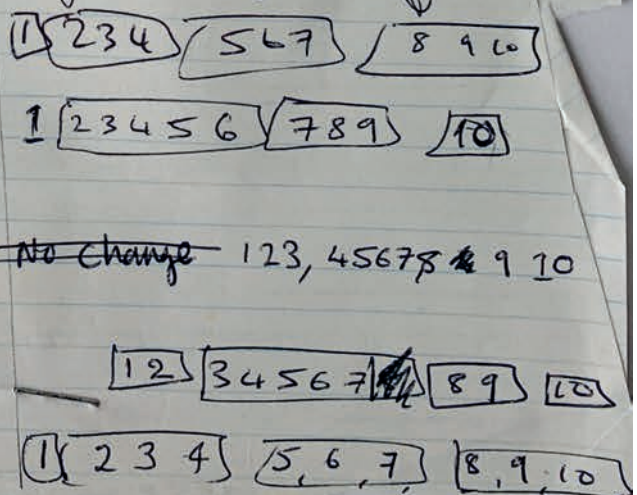 1 234 567 8 9 10
1 23456 789 10
No change 123, 45678 9 10
12 34567 89 10
1 2 3 4 5, 6, 7, 8, 9, 10